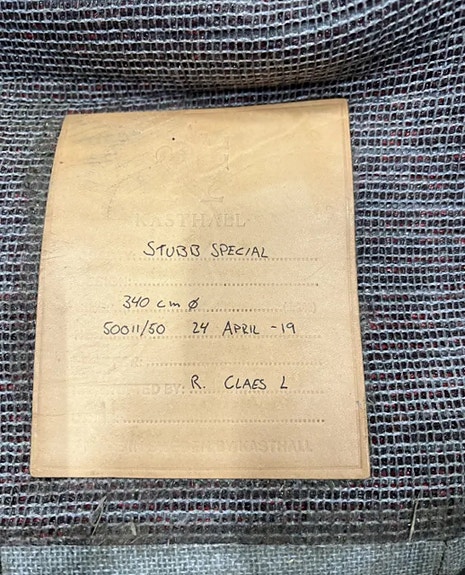 KASTHALL
STUBB SPECIAL
340 cm Ø
50011/50 24 APRIL -19
BY: R. CLAES L
KASTHALL